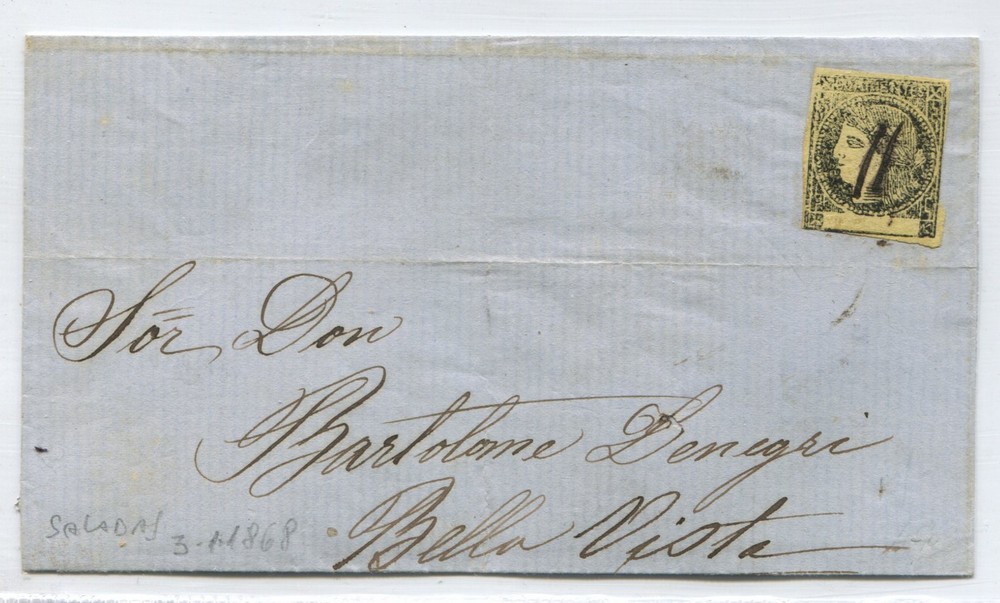 11
Sör Don
Bartolome Denegri
Bella Vista
SALADAS 3-1-1868